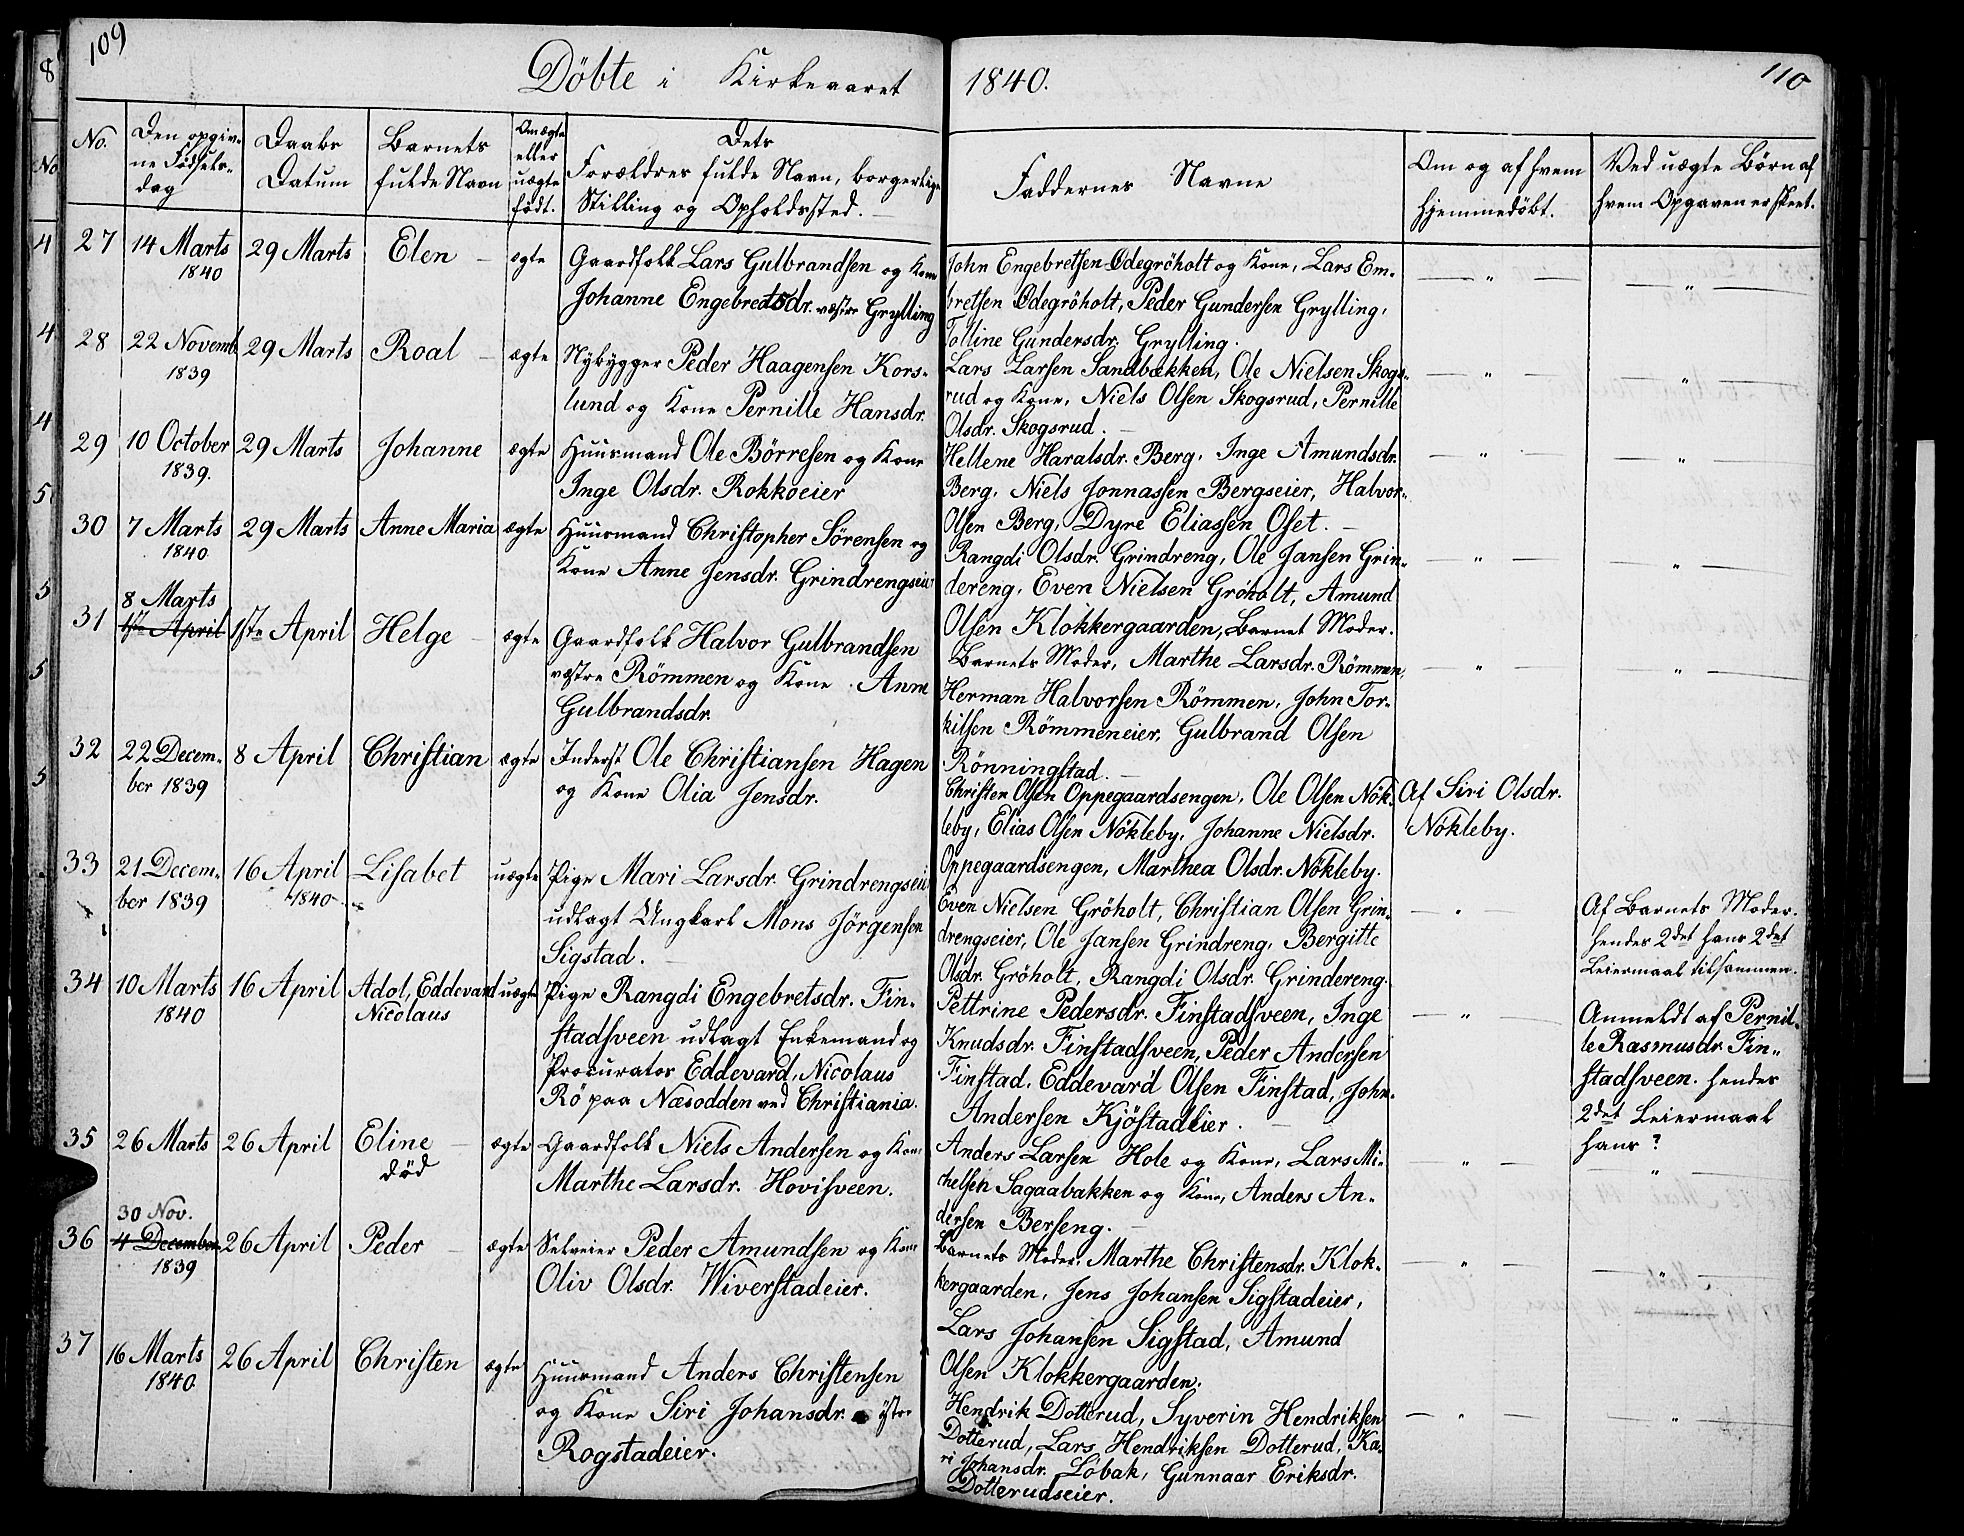 109
Döbte i Kirkeaaret
1840.
110
8
No
No.
Den opgiv-
ne Födsels-
dag
Daabs
Datum
Barnets
fulde Navn
Om ægte
eller
uægte
födt.
Dets
Forældres fulde Navn, borgerlige
Stilling og Opholdssted.
Faddernes Navne
Om og af hvem
hjemmedöbt.
Ved uægte Börn af
hvem Opgaven er skeet.
4
27
14 Marts
1840
29 Marts
Elen
ægte
Gaardfolk Lars Gulbrandsen og Kone
Johanne Engebretsdr. vestre Grylling
John Engebretsen Ödegröholt og Kone, Lars Em-
bretsen Ödegröholt, Peder Gundersen Grylling,
Tolline Gundersdr. Grylling.
4
28
22 Novemb
1839
29 Marts
Roal
ægte
Nybygger Peder Haagensen Kors-
lund og Kone Pernille Hansdr.
Lars Larsen Sandbækken, Ole Nielsen Skogs-
rud og Kone, Niels Olsen Skogsrud, Pernille
Olsdr. Skogsrud.
4
29
10 October
1839.
29 Marts
Johanne
ægte
Huusmand Ole Börresen og Kone
Inge Olsdr. Rokkoeier
Hellene Haralsdr. Berg, Inge Amundsdr.
Berg, Niels Jonnassen Bergseier, Halvor
Olsen Berg, Dyre Eliassen Oset.
5
30
7 Marts
1840
29 Marts
Anne Maria
ægte
Huusmand Christopher Sörensen og
Kone Anne Jensdr. Grindrengseier
Rangdi Olsdr. Grindreng, Ole Jansen Grin-
dereng, Even Nielsen Gröholt, Amund
Olsen Klokkergaarden, Barnet Moder.
5
31
8 Marts
1ste April
1ste April
Helge
ægte
Gaardfolk Halvor Gulbrandsen
vestre Römmen og Kone Anne
Gulbrandsdr.
Barnets Moder, Marthe Larsdr. Römmen,
Herman Halvorsen Römmen, John Tor-
kilsen Römmeneier, Gulbrand Olsen
Rönningstad.
5
32
22 Decem-
ber 1839
8 April
Christian
ægte
Inderst Ole Christiansen Hagen
og Kone Olia Jensdr.
Christen Olsen Oppegaardsengen, Ole Olsen Nök-
leby, Elias Olsen Nökleby, Johanne Nielsdr.
Oppegaardsengen, Marthea Olsdr. Nökleby.
Af Siri Olsdr.
Nökleby.
5
33
21 Decem-
ber 1839
16 April
1840
Lisabet
uægte
Pige Mari Larsdr. Grindrengseier
udlagt Ungkarl Mons Jörgensen
Sigstad.
Even Nielsen Gröholt, Christian Olsen Grin-
drengseier, Ole Jansen Grindreng, Bergitte
Olsdr. Gröholt, Rangdi Olsdr. Grindereng.
Af Barnets Moder.
hendes 2det hans 2det
Leiermaal tilsammen.
34
10 Marts
1840
16 April
Adol, Eddevard
Nicolaus
uægte
Pige Rangdi Engebretsdr. Fin-
stadsveen udlagt Enkemand og
Procurator Eddevard, Nicolaus
Rö paa Næsodden ved Christiania.
Pettrine Pedersdr. Finstadsveen, Inge
Knudsdr. Finstadsveen, Peder Andersen
Finstad, Eddevard Olsen Finstad, John
Andersen Kjöstadeier.
Anmeldt af Pernil-
le Rasmusdr. Fin-
stadsveen. hendes
2det Leiermaal
hans ?
35
26 Marts
26 April
Eline
död
ægte
Gaardfolk Niels Andersen og Kone
Marthe Larsdr. Hovisveen.
Anders Larsen Hole og Kone, Lars Mi-
chelsen Sagaabakken og Kone, Anders An-
dersen Berseng.
36
30 Nov.
4 December
1839
26 April
Peder
ægte
Selveier Peder Amundsen og Kone
Oliv Olsdr. Wiverstadeier.
Barnets Moder, Marthe Christensdr. Klok-
kergaarden, Jens Johansen Sigstadeier,
Lars Johansen Sigstad, Amund
Olsen Klokkergaarden.
37
16 Marts
1840
26 April
Christen
ægte
Huusmand Anders Christensen
og Kone Siri Johansdr. östre
Rogstadeier.
Hendrik Dotterud, Syverin Hendriksen
Dotterud, Lars Hendriksen Dotterud, Ka-
ri Johansdr. Löbak, Gunnaar Eriksdr.
Dotterudseier.